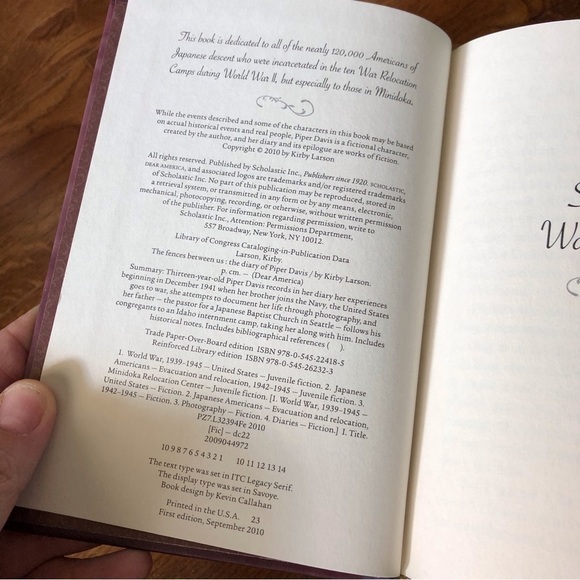 This book is dedicated to all of the nearly 120,000 Americans of
Japanese descent who were incarcerated in the ten War Relocation
Camps during World War II, but especially to those in Minidoka.
While the events described and some of the characters in this book may be based
on actual historical events and real people, Piper Davis is a fictional character,
created by the author, and her diary and its epilogue are works of fiction.
Copyright © 2010 by Kirby Larson
All rights reserved. Published by Scholastic Inc., Publishers since 1920. SCHOLASTIC,
DEAR AMERICA, and associated logos are trademarks and/or registered trademarks
of Scholastic Inc. No part of this publication may be reproduced, stored in
a retrieval system, or transmitted in any form or by any means, electronic,
mechanical, photocopying, recording, or otherwise, without written permission
of the publisher. For information regarding permission, write to
Scholastic Inc., Attention: Permissions Department,
557 Broadway, New York, NY 10012.
Library of Congress Cataloging-in-Publication Data
Larson, Kirby.
The fences between us : the diary of Piper Davis / by Kirby Larson.
p. cm. — (Dear America)
Summary: Thirteen-year-old Piper Davis records in her diary her experiences
beginning in December 1941 when her brother joins the Navy, the United States
goes to war, she attempts to document her life through photography, and
her father — the pastor for a Japanese Baptist Church in Seattle — follows his
congregants to an Idaho internment camp, taking her along with him. Includes
historical notes. Includes bibliographical references ( ).
Trade Paper-Over-Board edition ISBN 978-0-545-22418-5
Reinforced Library edition ISBN 978-0-545-26232-3
1. World War, 1939-1945 — United States — Juvenile fiction. 2. Japanese
Americans — Evacuation and relocation, 1942-1945 — Juvenile fiction. 3.
Minidoka Relocation Center — Juvenile fiction. [1. World War, 1939-1945 —
United States — Fiction. 2. Japanese Americans — Evacuation and relocation,
1942-1945 — Fiction. 3. Photography — Fiction. 4. Diaries — Fiction.] I. Title.
PZ7.L32394Fe 2010
[Fic] — dc22
2009044972
10 9 8 7 6 5 4 3 2 1 10 11 12 13 14
The text type was set in ITC Legacy Serif.
The display type was set in Savoye.
Book design by Kevin Callahan
Printed in the U.S.A. 23
First edition, September 2010